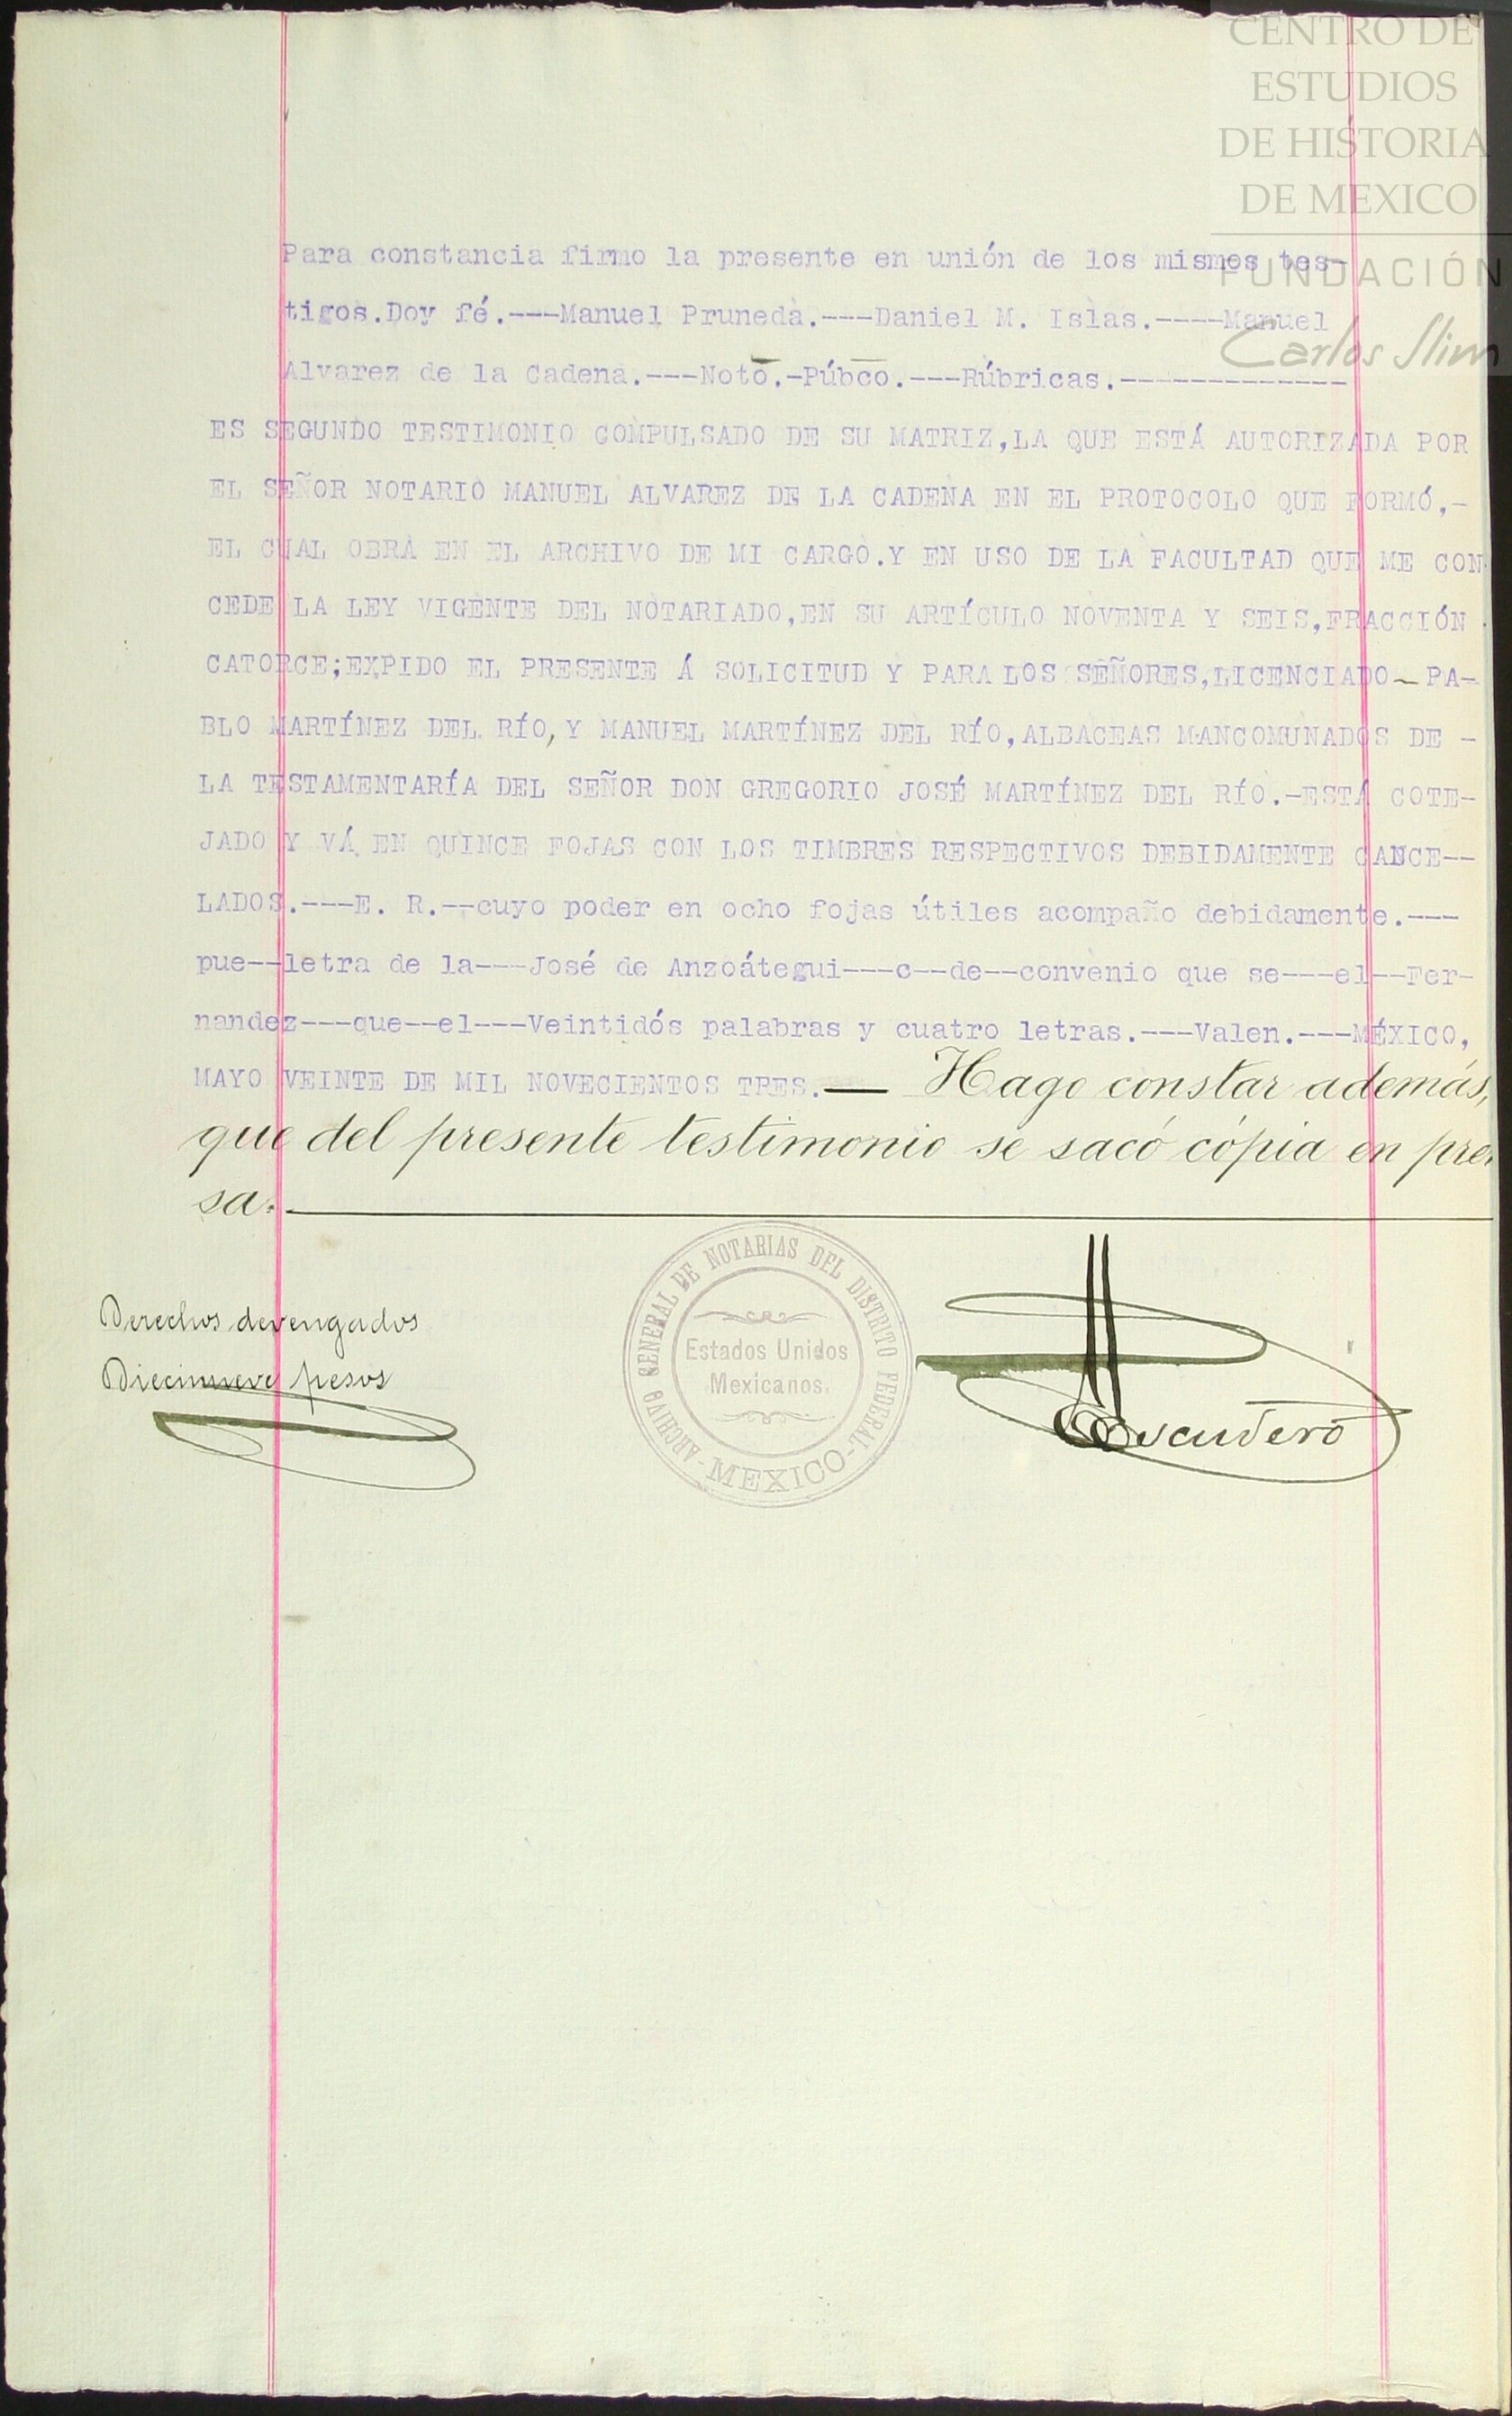 CENTRO DE
ESTUDIOS
DE HISTORIA
DE MEXICO
FUNDACIÓN
Carlos Slim
Para constancia firmo la presente en unión de los mismos tes-
tigos.Doy fé.---Manuel Pruneda.---Daniel M. Islas.----Manuel
Alvarez de la Cadena.---Noto.-Púbco.---Rúbricas.--------------
ES SEGUNDO TESTIMONIO COMPULSADO DE SU MATRIZ,LA QUE ESTÁ AUTORIZADA POR
EL SEÑOR NOTARIO MANUEL ALVAREZ DE LA CADENA EN EL PROTOCOLO QUE FORMÓ,-
EL CUAL OBRA EN EL ARCHIVO DE MI CARGO.Y EN USO DE LA FACULTAD QUE ME CON-
CEDE LA LEY VIGENTE DEL NOTARIADO,EN SU ARTÍCULO NOVENTA Y SEIS,FRACCIÓN
CATORCE;EXPIDO EL PRESENTE Á SOLICITUD Y PARA LOS SEÑORES,LICENCIADO - PA-
BLO MARTÍNEZ DEL RÍO,Y MANUEL MARTÍNEZ DEL RÍO,ALBACEAS MANCOMUNADOS DE -
LA TESTAMENTARÍA DEL SEÑOR DON GREGORIO JOSÉ MARTÍNEZ DEL RÍO.-ESTÁ COTE-
JADO Y VÁ EN QUINCE FOJAS CON LOS TIMBRES RESPECTIVOS DEBIDAMENTE CANCE--
LADOS.---E. R.--cuyo poder en ocho fojas útiles acompaño debidamente.---
pue--letra de la---José de Anzoátegui---c--de--convenio que se---el--Fer-
nandez---que--el---Veintidós palabras y cuatro letras.---Valen.---MÉXICO,
MAYO VEINTE DE MIL NOVECIENTOS TRES.— Hago constar además,
que del presente testimonio se sacó cópia en pren
sa.
Derechos devengados
Diecinueve pesos
ARCHIVO GENERAL DE NOTARIAS DEL DISTRITO FEDERAL
-MEXICO-
Estados Unidos
Mexicanos.
Escudero